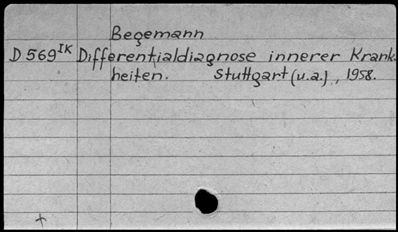 Begemann
D 569 IK Differentialdiagnose innerer Krank-
heiten. Stuttgart (u.a.), 1958.
+